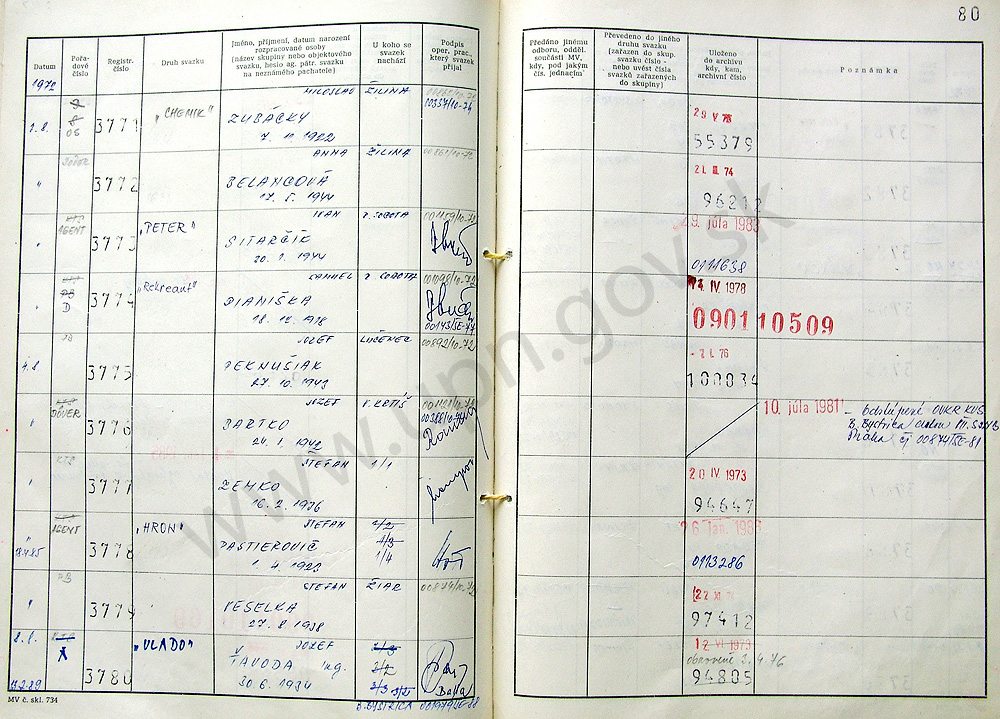 80
Datum
Pořadové číslo
Registr. číslo
Druh svazku
Jméno, příjmení, datum narození rozpracované osoby (název skupiny nebo objektového svazku, heslo ag. pátr. svazku na neznámého pachatele)
U koho se svazek nachází
Podpis oper. prac., který svazek přijal
Předáno jinému odboru, odděl. součásti MV, kdy, pod jakým čís. jednacím
Převedeno do jiného druhu svazku (zařazen do skup. svazku číslo - nebo uvést čísla svazků zařazených do skupiny)
Uloženo do archivu kdy, kam, archivní číslo
Poznámka
1972
MILOSLAV ŽILINA
2.8. OS 3771 „CHEMIK" ZUBÁČKY 00337/10-74
7. 11. 1922
29 V 78
55379
ANNA ŽILINA 00861/10-72
" 3772 BELANCOVÁ
17. 5. 1944
21. III. 74
96212
AGENT
IVAN R. SOBOTA 001109/10-72
" 3773 „PETER" SITARČÍK
20. 1. 1944
29. júla 1983
0111638
R. SOBOTA 001098/10-72
" D 3774 „Rekreant" PIANIŠKA
18. 12. 1918
00143/SE-77
14 IV 1978
090110509
JOZEF LUČENEC 00892/10-72
4.8 3775 PEKNUŠIAK
27. 10. 1943
- 7 I. 76
100034
DŮVER
JOZEF V. KRTÍŠ
" 3776 BARTKO
24. 1. 1942
10. júla 1981
Praha čj 00874/SE-81
ŠTEFAN 1/1
" KTS 3777 ZEMKO
16. 2. 1936
20 IV 1973
94647
AGENT
ŠTEFAN 1/2
1/3
" 3778 „HRON" PASTIEROVIČ 1/4
1. 4. 1923
26 jan. 1988
0113286
ŠTEFAN ŽIAR 00874/10-72
" PB 3779 VESELKA
27. 8. 1938
22 XI 74
97412
8.8. KTS
JOZEF 2/3
X 3780 „VLADO" ŤAVODA Ing. 3/2
30. 6. 1934 3/3 3/2
13.2.89
B. BYSTRICA
12 VI 1973
obnovené 2. 4. 76
94805
MV č. skl. 734
www.upn.gov.sk